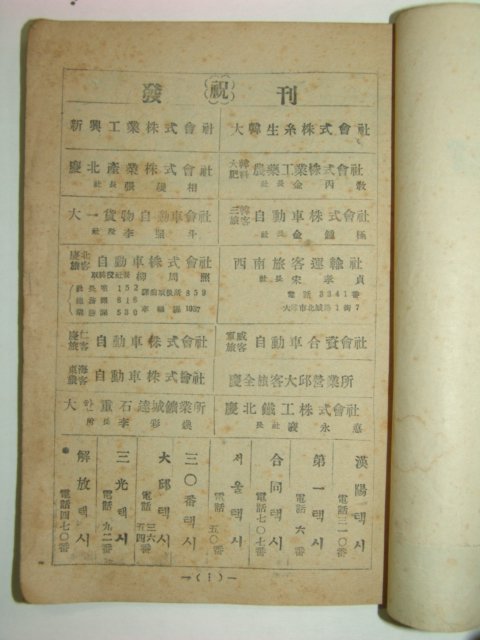 發 祝 刊
新興工業株式會社
大韓生糸株式會社
慶北產業株式會社
社長 張 相
大韓肥料 農藥工業株式會社
社長 金丙
大一貨物自動車會社
社長 李 斗
三韓旅客 自動車株式會社
社長 金鍾
慶北旅客 自動車株式會社
取締役社長 柳
社長 152
總務課 616
業務課 530
859
車輛課 1927
西南旅客運輸社
社長 宋孝貞
電話 3341番
大邱市北城路1街7
慶仁旅客 自動車株式會社
軍威旅客 自動車合資會社
東海旅客 自動車株式會社
慶全旅客大邱營業所
大한重石達城鑛業所
所長 李彩
慶北鐵工株式會社
社長 裵永
漢陽택시
電話三一〇番
第一택시
電話六番
合同택시
電話七〇七番
서울택시
電話五〇番
三〇番택시
大邱택시
電話 三六 五四 番
三光택시
電話九二番
解放택시
電話四七〇番
—(1)—